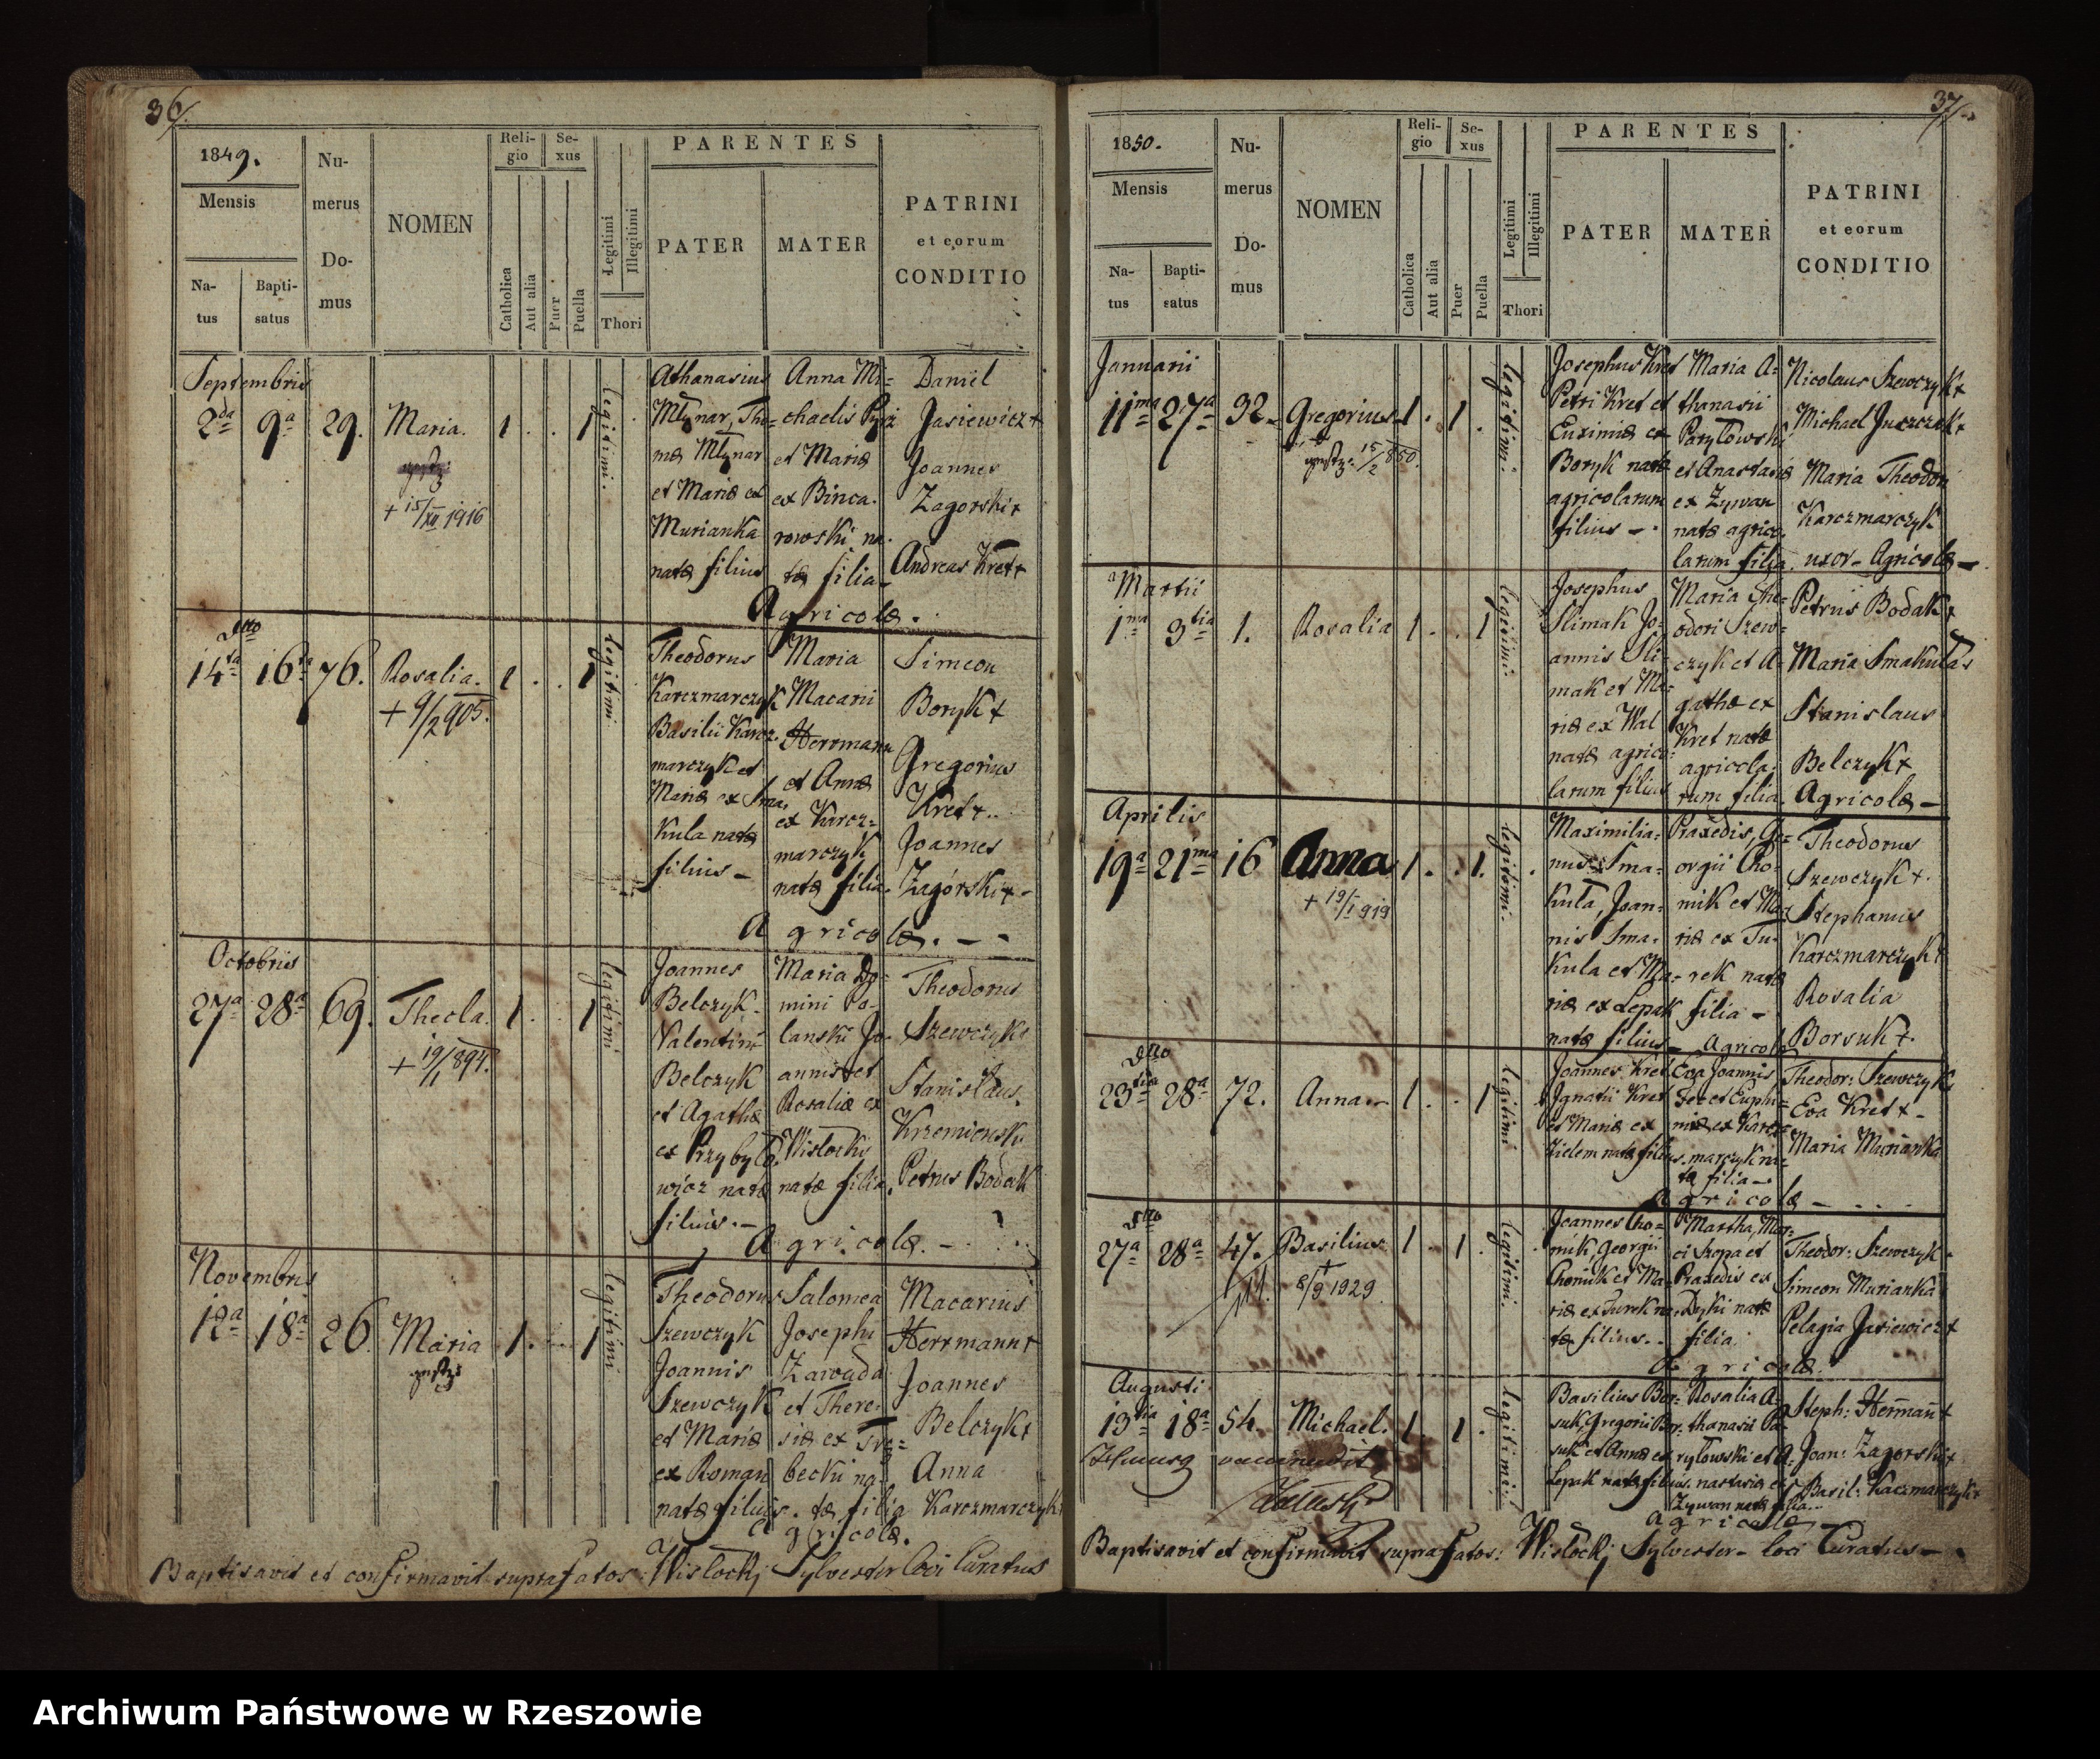 36/.
1849.
Mensis
Na-
tus
Bapti-
satus
Nu-
merus
Do-
mus
NOMEN
Reli-
gio
Catholica
Aut alia
Se-
xus
Puer
Puella
Legitimi
Illegitimi
Thori
PARENTES
PATER
MATER
PATRINI
et eorum
CONDITIO
Septembris
2da 9a 29. Maria. 1 . . 1 legitimi.
+ 15/XII 1916
Athanasius
Mlynar, Thi=
mæ Mlynar
et Mariæ ex
Murianka
natæ filius
Anna Mi=
chaelis Pyrz
et Mariæ
ex Binca.
rowski na.
tæ filia-
Daniel
Jasiewicz+
Joannes
Zagorski+
Andreas Kret+
Agricolæ.
dtto
14ta 16ta 76. Rosalia. 1 . . 1 legitimi.
+ 9/2 905.
Theodorus
Karczmarczyk
Basilii Karcz.
marczyk et
Mariæ ex Sma.
kula natæ
filius -
Maria
Macarii
Herrmann
et Annæ
ex Karcz=
marczyk
natæ filia.
Simeon
Boryk+
Gregorius
Kret+..
Joannes
Zagórski+-
Agricolæ. - -
Octobris
27a 28a 69. Thecla. 1 . . 1 legitimi
+ 19/1 894.
Joannes
Belczyk.
Valentini
Belczyk
et Agathæ
ex Przybyla.
wicz natæ
filius.-
Maria Do=
mini Po-
lanski Jo-
annis et
Rosaliæ ex
Wislocki
natæ filia.
Theodorus
Szewczyk+
Stanislaus.
Krzemienski
Petrus Bodak
Agricolæ.-
Novembris
12a 18a 26. Maria 1 . . 1 legitimi
Theodorus
Szewczyk
Joannis
Szewczyk
et Mariæ
ex Roman
natæ filius.
Salomea
Josephi
Zawada
et There-
siæ ex Tre=
becki na-
tæ filia
Macarius
Herrmann+
Joannes
Belczyk+
Anna
Karczmarczyk+
agricolæ.
Baptisavit et confirmavit suprafatos: Wislocki Sylvester Loci Curatus
37/.
1850.
Mensis
Na-
tus
Bapti-
satus
Nu-
merus
Do-
mus
NOMEN
Reli-
gio
Catholica
Aut alia
Se-
xus
Puer
Puella
Legitimi
Illegitimi
Thori
PARENTES
PATER
MATER
PATRINI
et eorum
CONDITIO
Januarii
11ma 27a 32. Gregorius 1 . 1 . legitimi.
15/2 850.
Josephus Kret
Petri Kret et
Euximiæ ex
Boryk natæ
agricolarum
filius - .
Maria A=
thanasii
Parylowski
et Anastasiæ
ex Zywan
natæ agrico.
larum filia.
Nicolaus Szewczyk+
Michael Juszczak+
Maria Theodori
Karczmarczyk
uxor- Agricolæ-
Martii
1ma 3tia 1. Rosalia 1 . . 1 legitimi.
Josephus
Slimak Jo-
annis Sli-
mak et Ma-
riæ ex Wal
natæ agrico-
larum filius
Maria The=
odori Szew=
czyk et A-
gathæ ex
Kret natæ
agricola.
rum filia.
Petrus Bodak+
Maria Smakula+
Stanislaus
Belczyk+
Agricolæ-
Aprilis
19a 21ma 16 Anna 1 . . 1. legitimi.
+ 19/I 919
Maximilia=
nus Sma=
kula, Joan=
nis Sma.
kula et Ma.
riæ ex Lepak
natæ filius
Praxedis, Ge=
orgii Cho=
mik et Ma-
riæ ex Tu-
rek natæ
filia -
- Agricolæ
Theodorus
Szewczyk+.
Stephanus
Karczmarczyk+
Rosalia
Borsuk+.
dtto
23tia 28a 72. Anna - 1 . . 1 legitimi
Joannes Kret
Ignatii Kret
et Mariæ ex
Zielem natæ filius.
Eva Joannis
et Euphi=
miæ ex Karcz=
marczyk na=
tæ filia-
Theodor: Szewczyk+
Eva Kret+-
Maria Murianka
agricolæ - . . . .
dtto
27a 28a 47. Basilius 1 . 1 . legitimi.
+ 8/9 1929
Joannes Cho=
mik, Georgii
Chomik et Ma-
riæ ex Turek na-
tæ filius..
Martha, Mar=
ci Szopa et
Praxedis ex
Dyki natæ
filia.
Theodor: Szewczyk-
Simeon Murianka
Pelagia Jasiewicz+
Agricolæ
Augusti
13tia 18a 54. Michael. 1 . 1 . legitimi
Basilius Bor-
suk, Gregorii Bor-
suk et Annæ ex
Lepak natæ filius.
Rosalia A=
thanasii Pa-
rylowski et A.
nastasiæ ex
Zywan natæ filia..
Steph: Hermann+
Joan: Zagorski+
Basil: Kaczmarczyk+
agricolæ -
Baptisavit et confirmavit suprafatos: Wislocki Sylvester- loci Curatus- .
Archiwum Państwowe w Rzeszowie